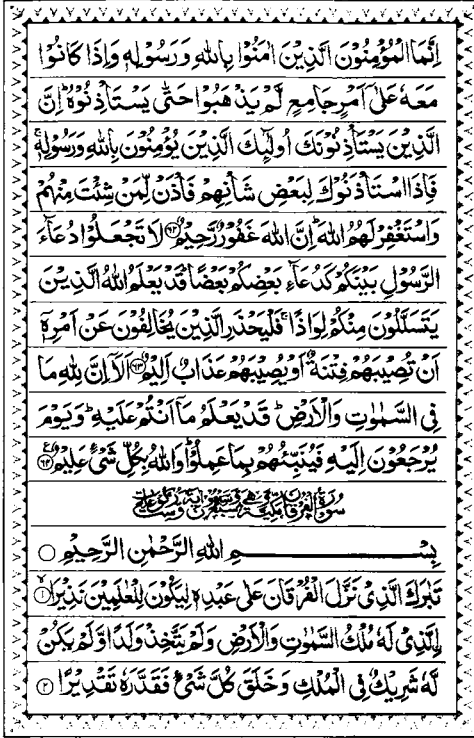 اِنَّمَا الْمُؤْمِنُوْنَ الَّذِيْنَ اٰمَنُوْا بِاللّٰهِ وَرَسُوْلِهٖ وَاِذَا كَانُوْا
مَعَهٗ عَلٰٓى اَمْرٍ جَامِعٍ لَّمْ يَذْهَبُوْا حَتّٰى يَسْتَاْذِنُوْهُ ؕ اِنَّ
الَّذِيْنَ يَسْتَاْذِنُوْنَكَ اُولٰٓئِكَ الَّذِيْنَ يُؤْمِنُوْنَ بِاللّٰهِ وَرَسُوْلِهٖ ۚ
فَاِذَا اسْتَاْذَنُوْكَ لِبَعْضِ شَاْنِهِمْ فَاْذَنْ لِّمَنْ شِئْتَ مِنْهُمْ
وَاسْتَغْفِرْ لَهُمُ اللّٰهَ ؕ اِنَّ اللّٰهَ غَفُوْرٌ رَّحِيْمٌ ﴿۶۲﴾ لَا تَجْعَلُوْا دُعَآءَ
الرَّسُوْلِ بَيْنَكُمْ كَدُعَآءِ بَعْضِكُمْ بَعْضًا ؕ قَدْ يَعْلَمُ اللّٰهُ الَّذِيْنَ
يَتَسَلَّلُوْنَ مِنْكُمْ لِوَاذًا ۚ فَلْيَحْذَرِ الَّذِيْنَ يُخَالِفُوْنَ عَنْ اَمْرِهٖۤ
اَنْ تُصِيْبَهُمْ فِتْنَةٌ اَوْ يُصِيْبَهُمْ عَذَابٌ اَلِيْمٌ ﴿۶۳﴾ اَلَاۤ اِنَّ لِلّٰهِ مَا
فِى السَّمٰوٰتِ وَالْاَرْضِ ؕ قَدْ يَعْلَمُ مَاۤ اَنْتُمْ عَلَيْهِ ؕ وَيَوْمَ
يُرْجَعُوْنَ اِلَيْهِ فَيُنَبِّئُهُمْ بِمَا عَمِلُوْا ؕ وَاللّٰهُ بِكُلِّ شَىْءٍ عَلِيْمٌ ﴿۶۴﴾
سُوْرَةُ الْفُرْقَانِ مَكِّيَّةٌ
بِسْمِ اللّٰهِ الرَّحْمٰنِ الرَّحِيْمِ
تَبٰرَكَ الَّذِىْ نَزَّلَ الْفُرْقَانَ عَلٰى عَبْدِهٖ لِيَكُوْنَ لِلْعٰلَمِيْنَ نَذِيْرًا ﴿۱﴾
اِۨلَّذِىْ لَهٗ مُلْكُ السَّمٰوٰتِ وَالْاَرْضِ وَلَمْ يَتَّخِذْ وَلَدًا وَّلَمْ يَكُنْ
لَّهٗ شَرِيْكٌ فِى الْمُلْكِ وَخَلَقَ كُلَّ شَىْءٍ فَقَدَّرَهٗ تَقْدِيْرًا ﴿۲﴾